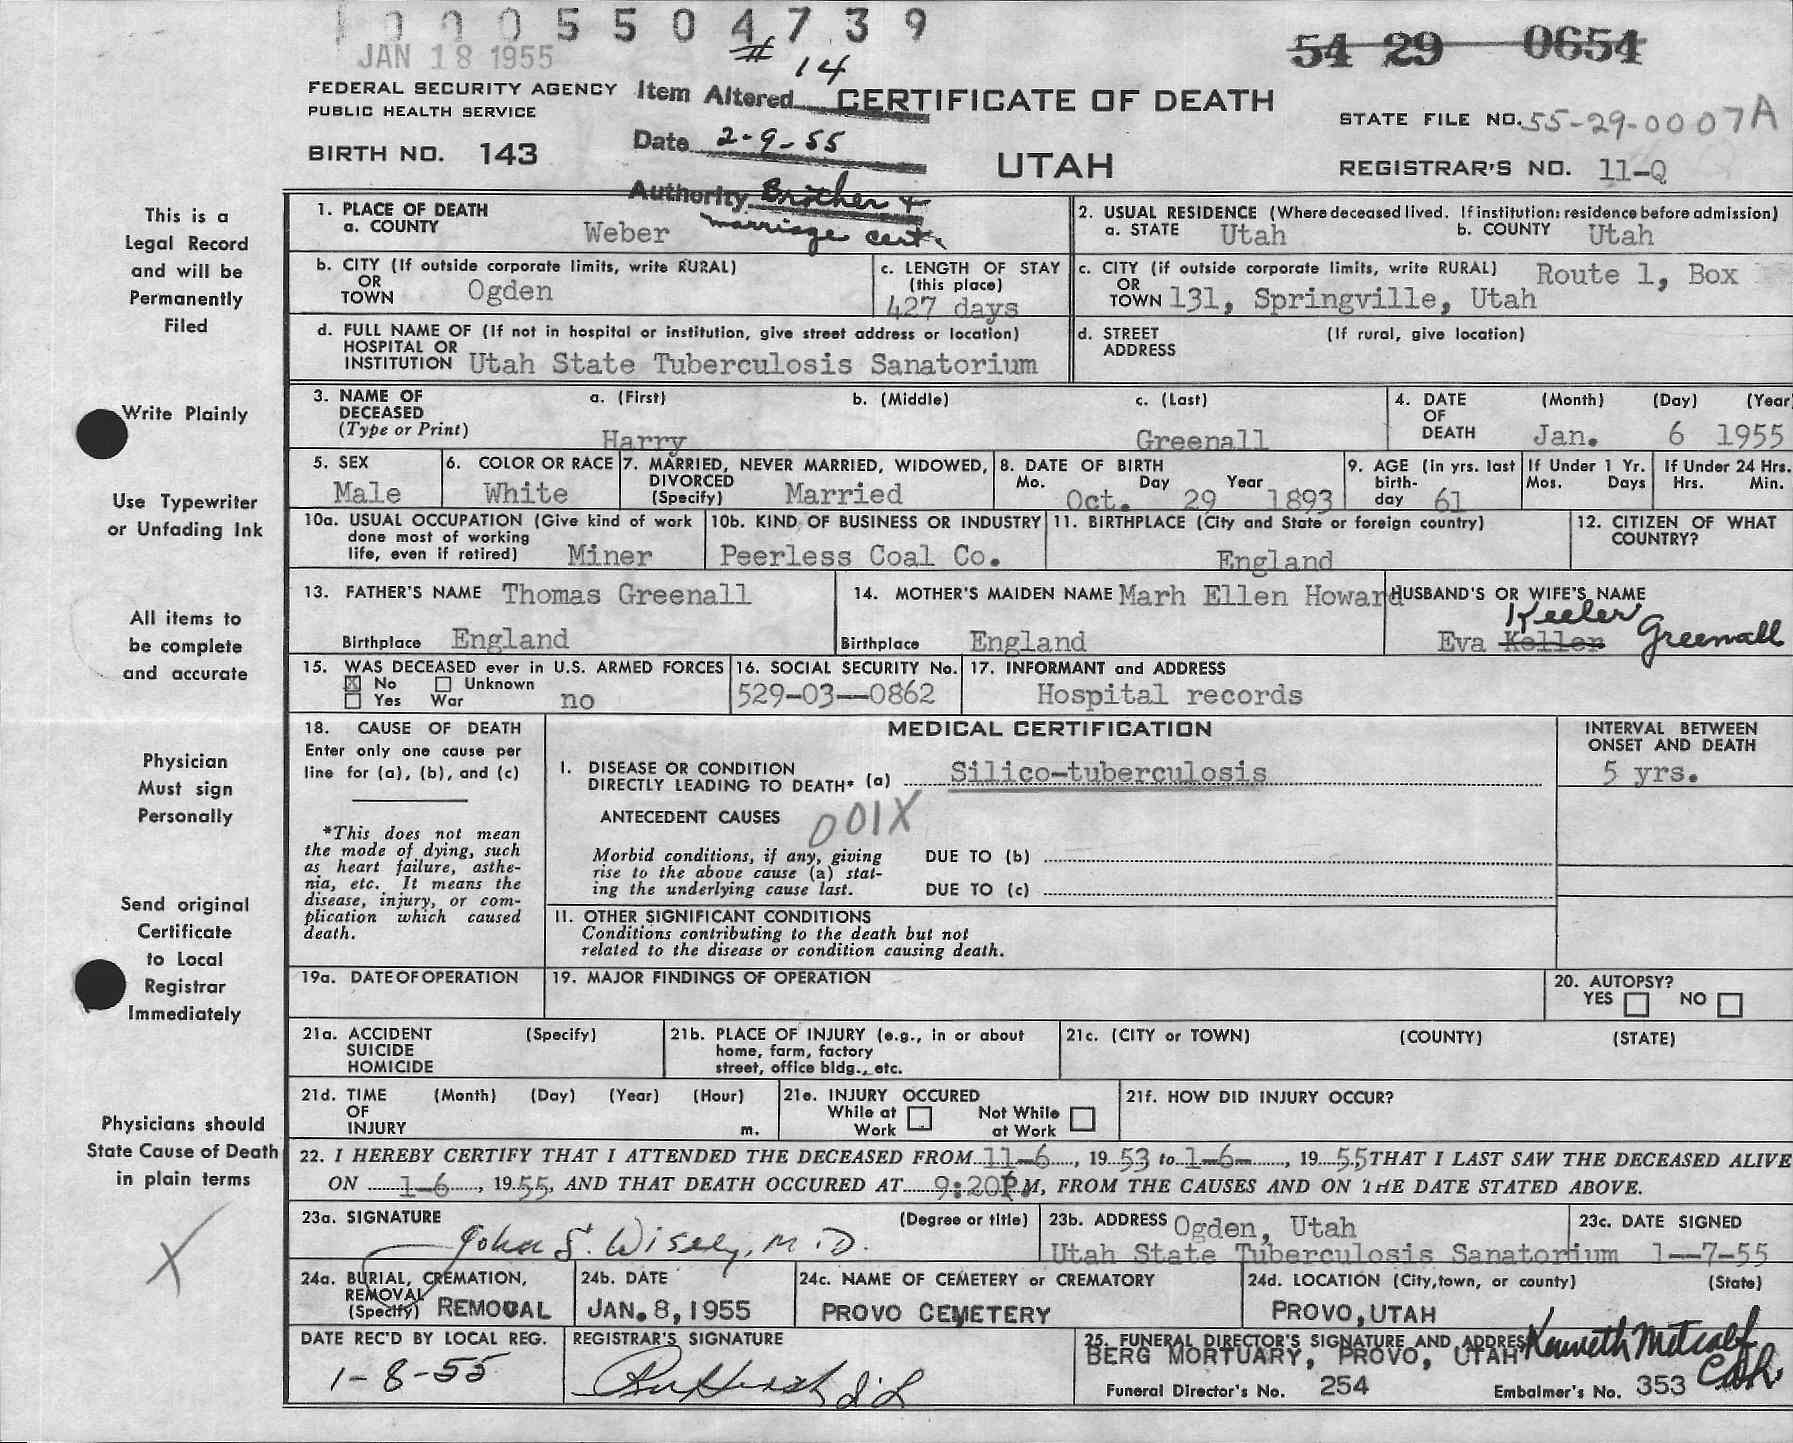 1000550 4739
JAN 18 1955
# 14
54 29 0654
FEDERAL SECURITY AGENCY
PUBLIC HEALTH SERVICE
Item Altered
CERTIFICATE OF DEATH
STATE FILE NO. 55-29-0007A
BIRTH NO. 143
Date 2-9-55
UTAH
REGISTRAR'S NO. 11-Q
Authority Brother +
marriage cert.
This is a
Legal Record
and will be
Permanently
Filed
Write Plainly
Use Typewriter
or Unfading Ink
All items to
be complete
and accurate
Physician
Must sign
Personally
Send original
Certificate
to Local
Registrar
Immediately
Physicians should
State Cause of Death
in plain terms
X
1. PLACE OF DEATH
a. COUNTY Weber
2. USUAL RESIDENCE (Where deceased lived. If institution: residence before admission)
a. STATE Utah b. COUNTY Utah
b. CITY (If outside corporate limits, write RURAL)
OR
TOWN Ogden
c. LENGTH OF STAY
(this place)
427 days
c. CITY (if outside corporate limits, write RURAL) Route 1, Box
OR
TOWN 131, Springville, Utah
d. FULL NAME OF (If not in hospital or institution, give street address or location)
HOSPITAL OR
INSTITUTION Utah State Tuberculosis Sanatorium
d. STREET (If rural, give location)
ADDRESS
3. NAME OF
DECEASED
(Type or Print)
a. (First) b. (Middle) c. (Last)
Harry Greenall
4. DATE (Month) (Day) (Year
OF
DEATH Jan. 6 1955
5. SEX
Male
6. COLOR OR RACE
White
7. MARRIED, NEVER MARRIED, WIDOWED,
DIVORCED
(Specify) Married
8. DATE OF BIRTH
Mo. Day Year
Oct. 29 1893
9. AGE (in yrs. last
birth-
day 61
If Under 1 Yr.
Mos. Days
If Under 24 Hrs.
Hrs. Min.
10a. USUAL OCCUPATION (Give kind of work
done most of working
life, even if retired) Miner
10b. KIND OF BUSINESS OR INDUSTRY
Peerless Coal Co.
11. BIRTHPLACE (City and State or foreign country)
England
12. CITIZEN OF WHAT
COUNTRY?
13. FATHER'S NAME Thomas Greenall
Birthplace England
14. MOTHER'S MAIDEN NAME Marh Ellen Howard
Birthplace England
HUSBAND'S OR WIFE'S NAME
Keeler
Eva Keller Greenall
15. WAS DECEASED ever in U.S. ARMED FORCES
X No Unknown
Yes War no
16. SOCIAL SECURITY No.
529-03--0862
17. INFORMANT and ADDRESS
Hospital records
18. CAUSE OF DEATH
Enter only one cause per
line for (a), (b), and (c)
*This does not mean
the mode of dying, such
as heart failure, asthe-
nia, etc. It means the
disease, injury, or com-
plication which caused
death.
MEDICAL CERTIFICATION
INTERVAL BETWEEN
ONSET AND DEATH
I. DISEASE OR CONDITION
DIRECTLY LEADING TO DEATH* (a) Silico-tuberculosis
5 yrs.
ANTECEDENT CAUSES
001X
Morbid conditions, if any, giving
rise to the above cause (a) stat-
ing the underlying cause last.
DUE TO (b)
DUE TO (c)
II. OTHER SIGNIFICANT CONDITIONS
Conditions contributing to the death but not
related to the disease or condition causing death.
19a. DATE OF OPERATION
19. MAJOR FINDINGS OF OPERATION
20. AUTOPSY?
YES NO
21a. ACCIDENT (Specify)
SUICIDE
HOMICIDE
21b. PLACE OF INJURY (e.g., in or about
home, farm, factory
street, office bldg., etc.
21c. (CITY or TOWN) (COUNTY) (STATE)
21d. TIME (Month) (Day) (Year) (Hour)
OF
INJURY m.
21e. INJURY OCCURED
While at Not While
Work at Work
21f. HOW DID INJURY OCCUR?
22. I HEREBY CERTIFY THAT I ATTENDED THE DECEASED FROM 11-6, 1953 to 1-6-, 1955 THAT I LAST SAW THE DECEASED ALIVE
ON 1-6, 1955, AND THAT DEATH OCCURED AT 9:20P.M, FROM THE CAUSES AND ON THE DATE STATED ABOVE.
23a. SIGNATURE (Degree or title)
John S. Wisely, M.D.
23b. ADDRESS Ogden, Utah
Utah State Tuberculosis Sanatorium
23c. DATE SIGNED
1--7-55
24a. BURIAL, CREMATION,
REMOVAL
(Specify) REMOVAL
24b. DATE
JAN. 8, 1955
24c. NAME OF CEMETERY or CREMATORY
PROVO CEMETERY
24d. LOCATION (City, town, or county) (State)
PROVO, UTAH
DATE REC'D BY LOCAL REG.
1-8-55
REGISTRAR'S SIGNATURE
25. FUNERAL DIRECTOR'S SIGNATURE AND ADDRESS
BERG MORTUARY, PROVO, UTAH Kenneth Metcalf
Funeral Director's No. 254 Embalmer's No. 353